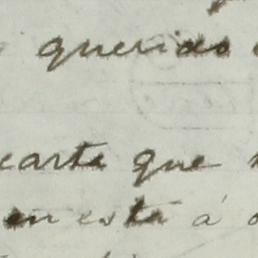 querido
carta que
en esta á